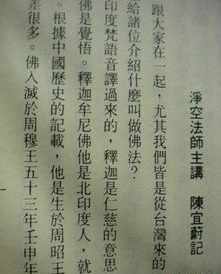 淨空法師主講　陳宜蔚記
跟大家在一起，尤其我們皆是從台灣來的
給諸位介紹什麼叫做佛法？
印度梵語音譯過來的，釋迦是仁慈的意思
佛是覺悟。釋迦牟尼佛他是北印度人，就
。根據中國歷史的記載，他是生於周昭王
很多。佛入滅於周穆王五十三年壬申年